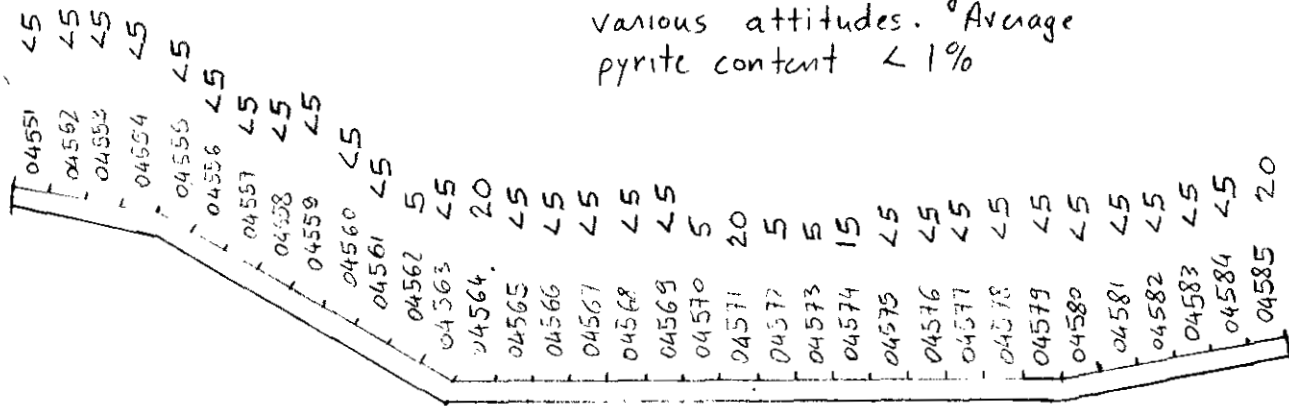 various attitudes. Average
pyrite content < 1%
04551 <5
04562 <5
04553 <5
04554 <5
04555 <5
04556 <5
04557 <5
04558 <5
04559 <5
04560 <5
04561 <5
04562 5
04563 <5
04564. 20
04565 <5
04566 <5
04567 <5
04568 <5
04569 <5
04570 5
04571 20
04577 5
04573 5
04574 15
04575 <5
04576 <5
04577 <5
04578 <5
04579 <5
04580 <5
04581 <5
04582 <5
04583 <5
04584 <5
04585 20